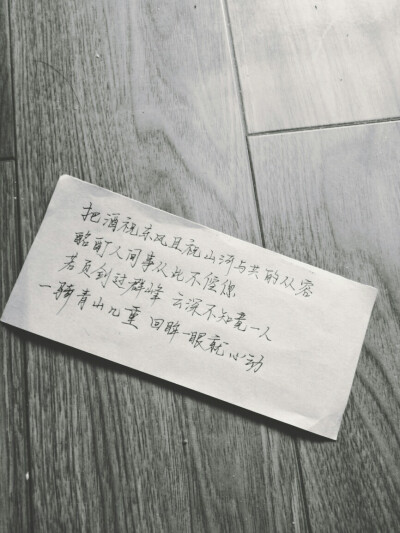 把酒祝东风且祝山河与共的从容
酩酊人间事从此不倥偬
若页到过群峰 云深不知竟一人
一骑青山几重 回眸一眼就心动